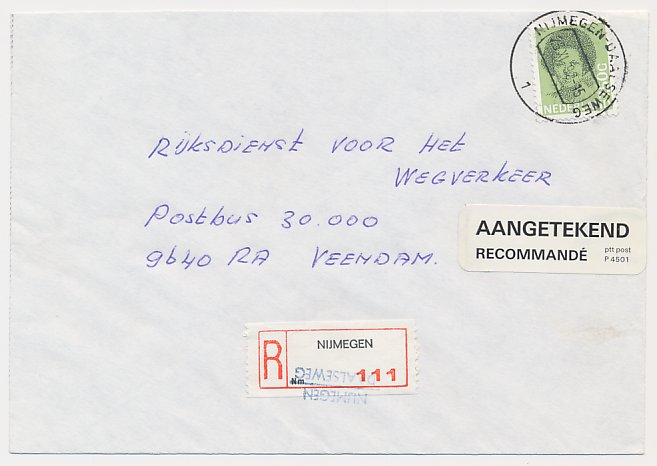 NIJMEGEN-DAALSEWEG
1
NEDE
RIJKSDIENST VOOR HET
WEGVERKEER
Postbus 30.000
9640 RA VEENDAM.
AANGETEKEND
RECOMMANDÉ
ptt post
P 4501
R
NIJMEGEN
Nm.
111
DAALSEWEG
NIJMEGEN